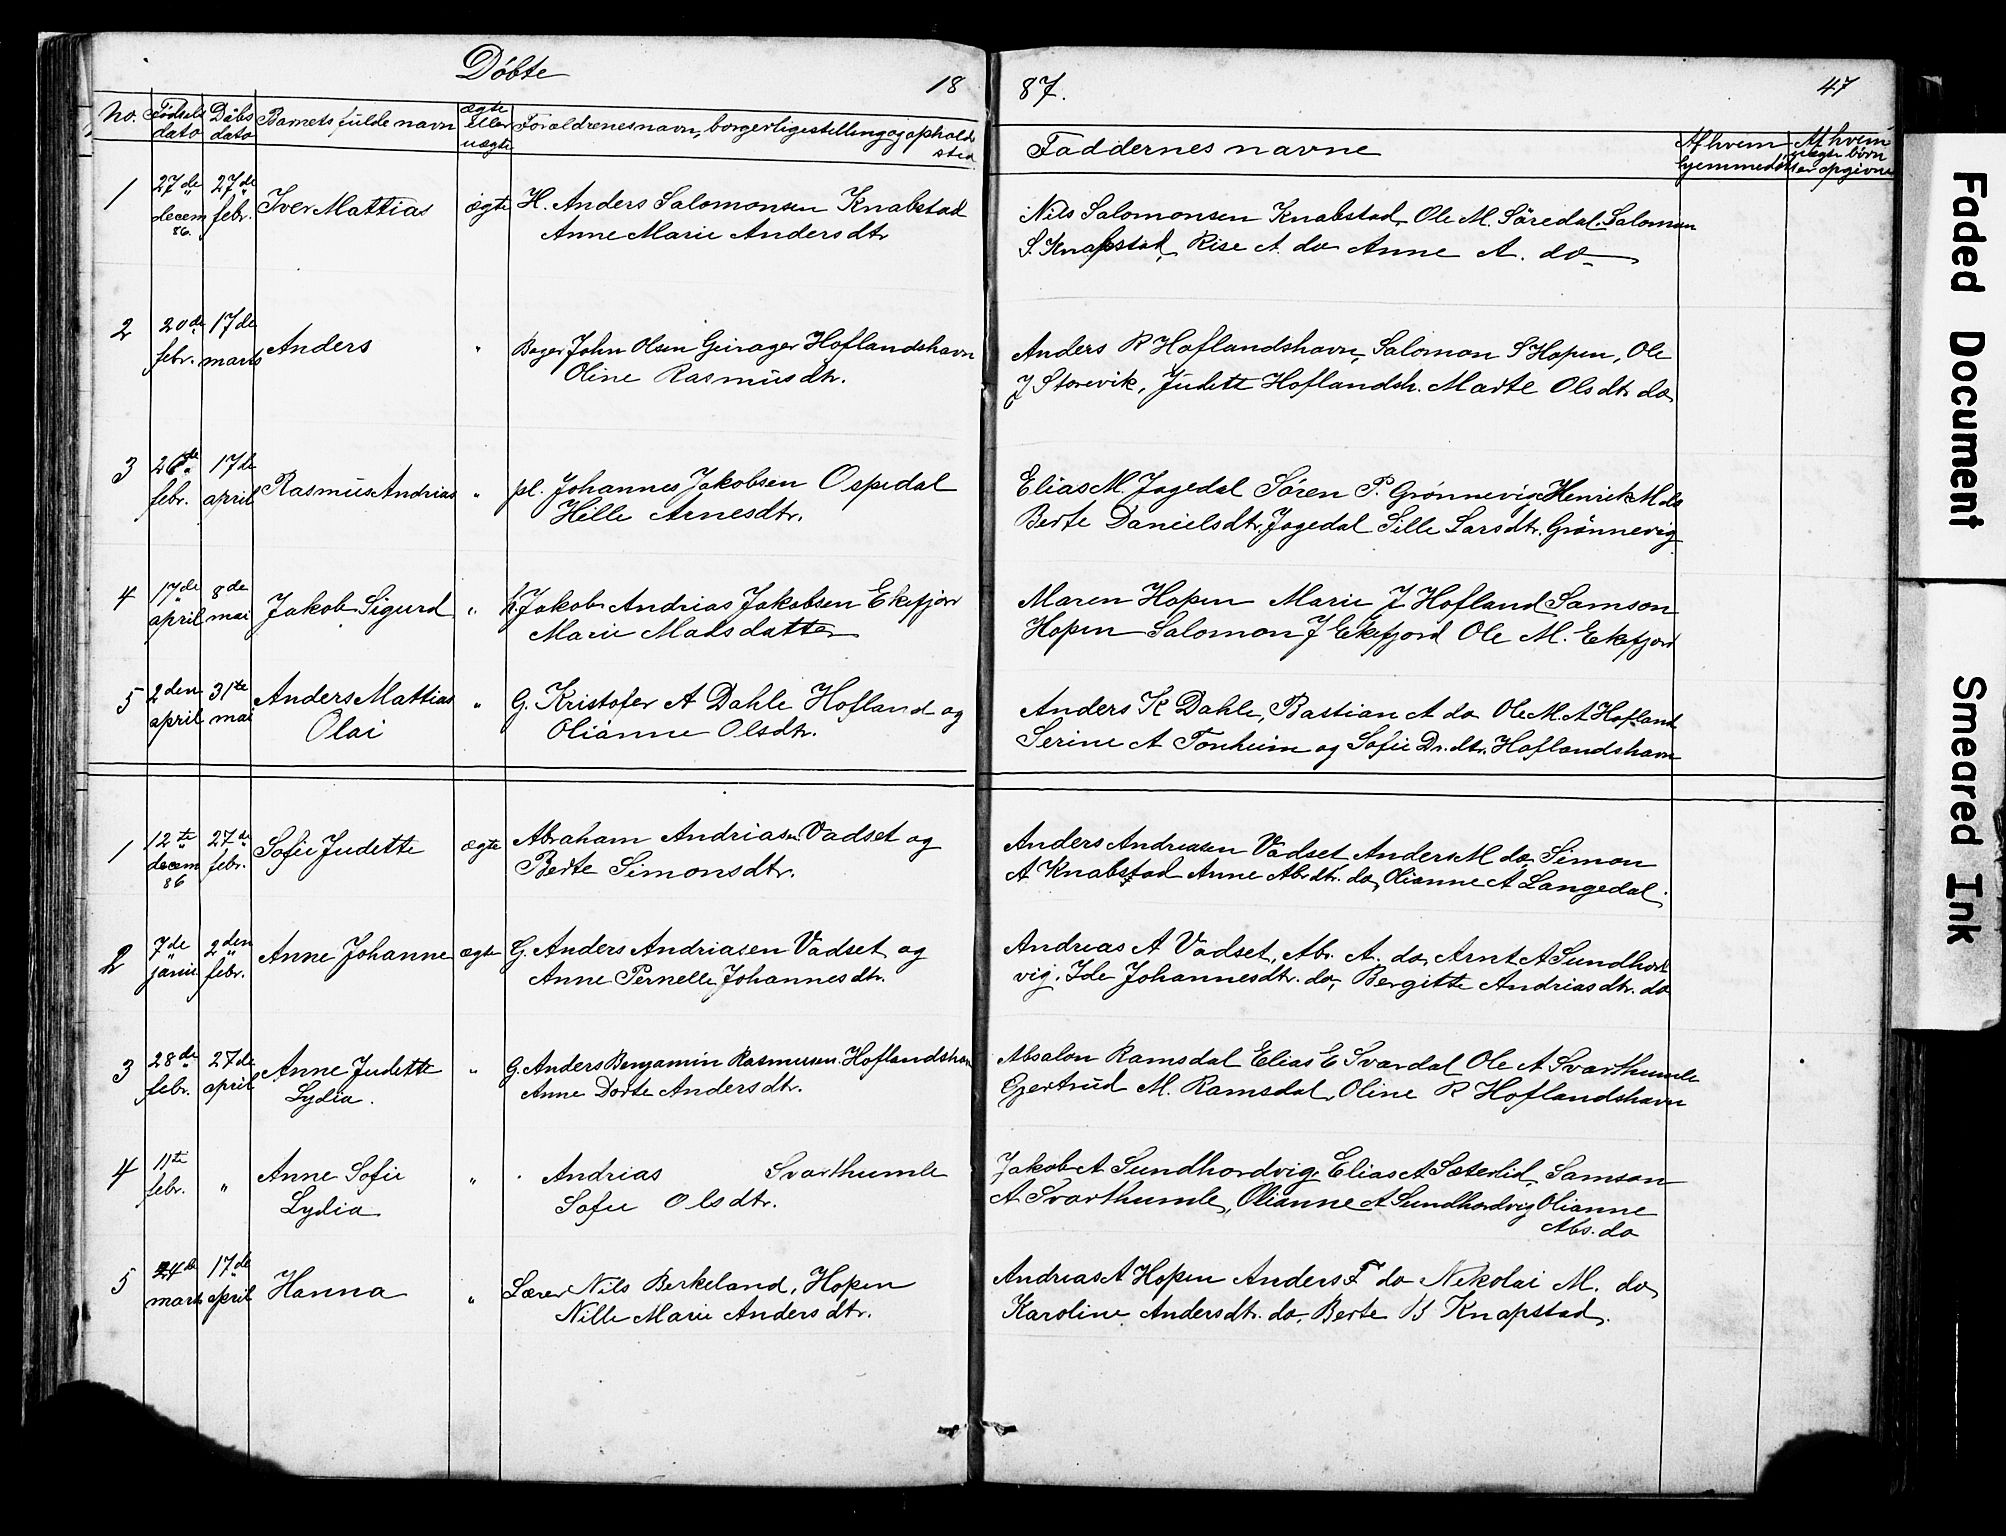 Döbte 18 87. 47
No. Fødsels dato Döbs dato Barnets fulde navn ægte eller uægte Forældrenes navn, borgerlige stilling og opholds sted Faddernes navne Af hvem hjemmedøbt Af hvem uægte børn er opgivne
1 27de decem 86. 27de febr. Iver Mattias ægte H. Anders Salomonsen Knabstad Nils Salomonsen Knabstad, Ole M. Söredal, Salomon
Anne Marie Andersdtr S. Knapstad, Rise A. do Anne A. do
2 20de febr. 17de marts Anders " Bager John Olsen Geirager Hoflandshavn Anders R Hoflandshavn, Salomon S Hopen, Ole
Oline Rasmusdtr. J Storevik, Judett Hoflandsh. Marte Olsdtr do
3 26de febr. 17de april Rasmus Andrias " pl. Johannes Jakobsen Ospedal Elias M. Jagedal Sören P. Grönnevig Henrik M do
Hille Arnesdtr. Berte Danielsdtr. Jagedal Sille Larsdtr. Grönnevig
4 17de april 8de mai Jakob Sigurd " h. Jakob Andrias Jakobsen Ekefjor Maren Hopen Marie J Hofland Samson
Marie Madsdatter Hopen Salomon J Ekefjord Ole M. Ekefjord
5 2den april 31te mai Anders Mattias " G. Kristofer A Dahle Hofland og Anders K Dahle, Bastian A do Ole M. A Hofland
Olai Olianne Olsdtr. Serine A Tonheim og Sofie Dr.dtr. Hoflandshavn
1 12te decem 86 27de febr. Sofie Judette ægte Abraham Andriasen Vadset og Anders Andreasen Vadset Anders M do, Simon
Berte Simonsdtr. A Knabstad Anne Abrdtr. do, Olianne A Langedal.
2 7de janu 2den febr. Anne Johanne ægte G. Anders Andriasen Vadset og Andreas A Vadset, Abr. A. do, Arnt A Sundhord
Anne Pernelle Johannesdtr. vig. Ide Johannesdtr. do, Bergitte Andriasdtr. do
3 28de febr. 27de april Anne Judette " G. Anders Benjamin Rasmussen Hoflandshavn Absalon Ramsdal Elias E Svardal Ole A Svarthumle
Lydia. Anne Dorte Andersdtr. Gjertrud M. Ramsdal, Oline R Hoflandshavn
4 11te febr. " Anne Sofie " Andrias Svarthumle Jakob A Sundhordvig, Elias A Sæterlid, Samson
Lydia Sofie Olsdtr. A Svarthumle, Olianne A Sundhordvig Olianne
Abs. do
5 24de marts 17de april Hanna " Lærer Nils Berkeland, Hopen Andrias A Hopen Anders F do Nikolai M. do
Nille Marie Andersdtr. Karoline Andersdtr. do, Berte B Knapstad.
Faded Document
Smeared Ink